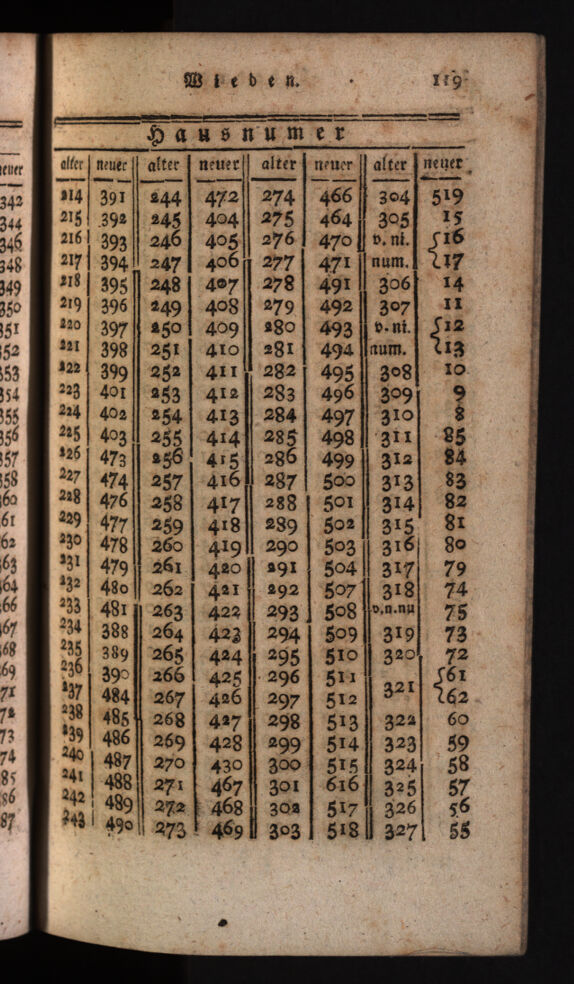 Wieden. 119
Hausnumer
alter neuer alter neuer alter neuer alter neuer
214 391 244 472 274 466 304 519
215 392 245 404 275 464 305 15
216 393 246 405 276 470 v. ni. 16
217 394 247 406 277 471 num. 17
218 395 248 407 278 491 306 14
219 396 249 408 279 492 307 11
220 397 250 409 280 493 v. ni. 12
221 398 251 410 281 494 num. 13
222 399 252 411 282 495 308 10
223 401 253 412 283 496 309 9
224 402 254 413 284 497 310 8
225 403 255 414 285 498 311 85
226 473 256 415 286 499 312 84
227 474 257 416 287 500 313 83
228 476 258 417 288 501 314 82
229 477 259 418 289 502 315 81
230 478 260 419 290 503 316 80
231 479 261 420 291 504 317 79
232 480 262 421 292 507 318 74
233 481 263 422 293 508 v.n.nu 75
234 388 264 423 294 509 319 73
235 389 265 424 295 510 320 72
236 390 266 425 296 511 321 61
237 484 267 426 297 512 62
238 485 268 427 298 513 322 60
239 486 269 428 299 514 323 59
240 487 270 430 300 515 324 58
241 488 271 467 301 616 325 57
242 489 272 468 302 517 326 56
243 490 273 469 303 518 327 55
neuer
342
344
346
348
349
350
351
352
353
354
355
356
357
358